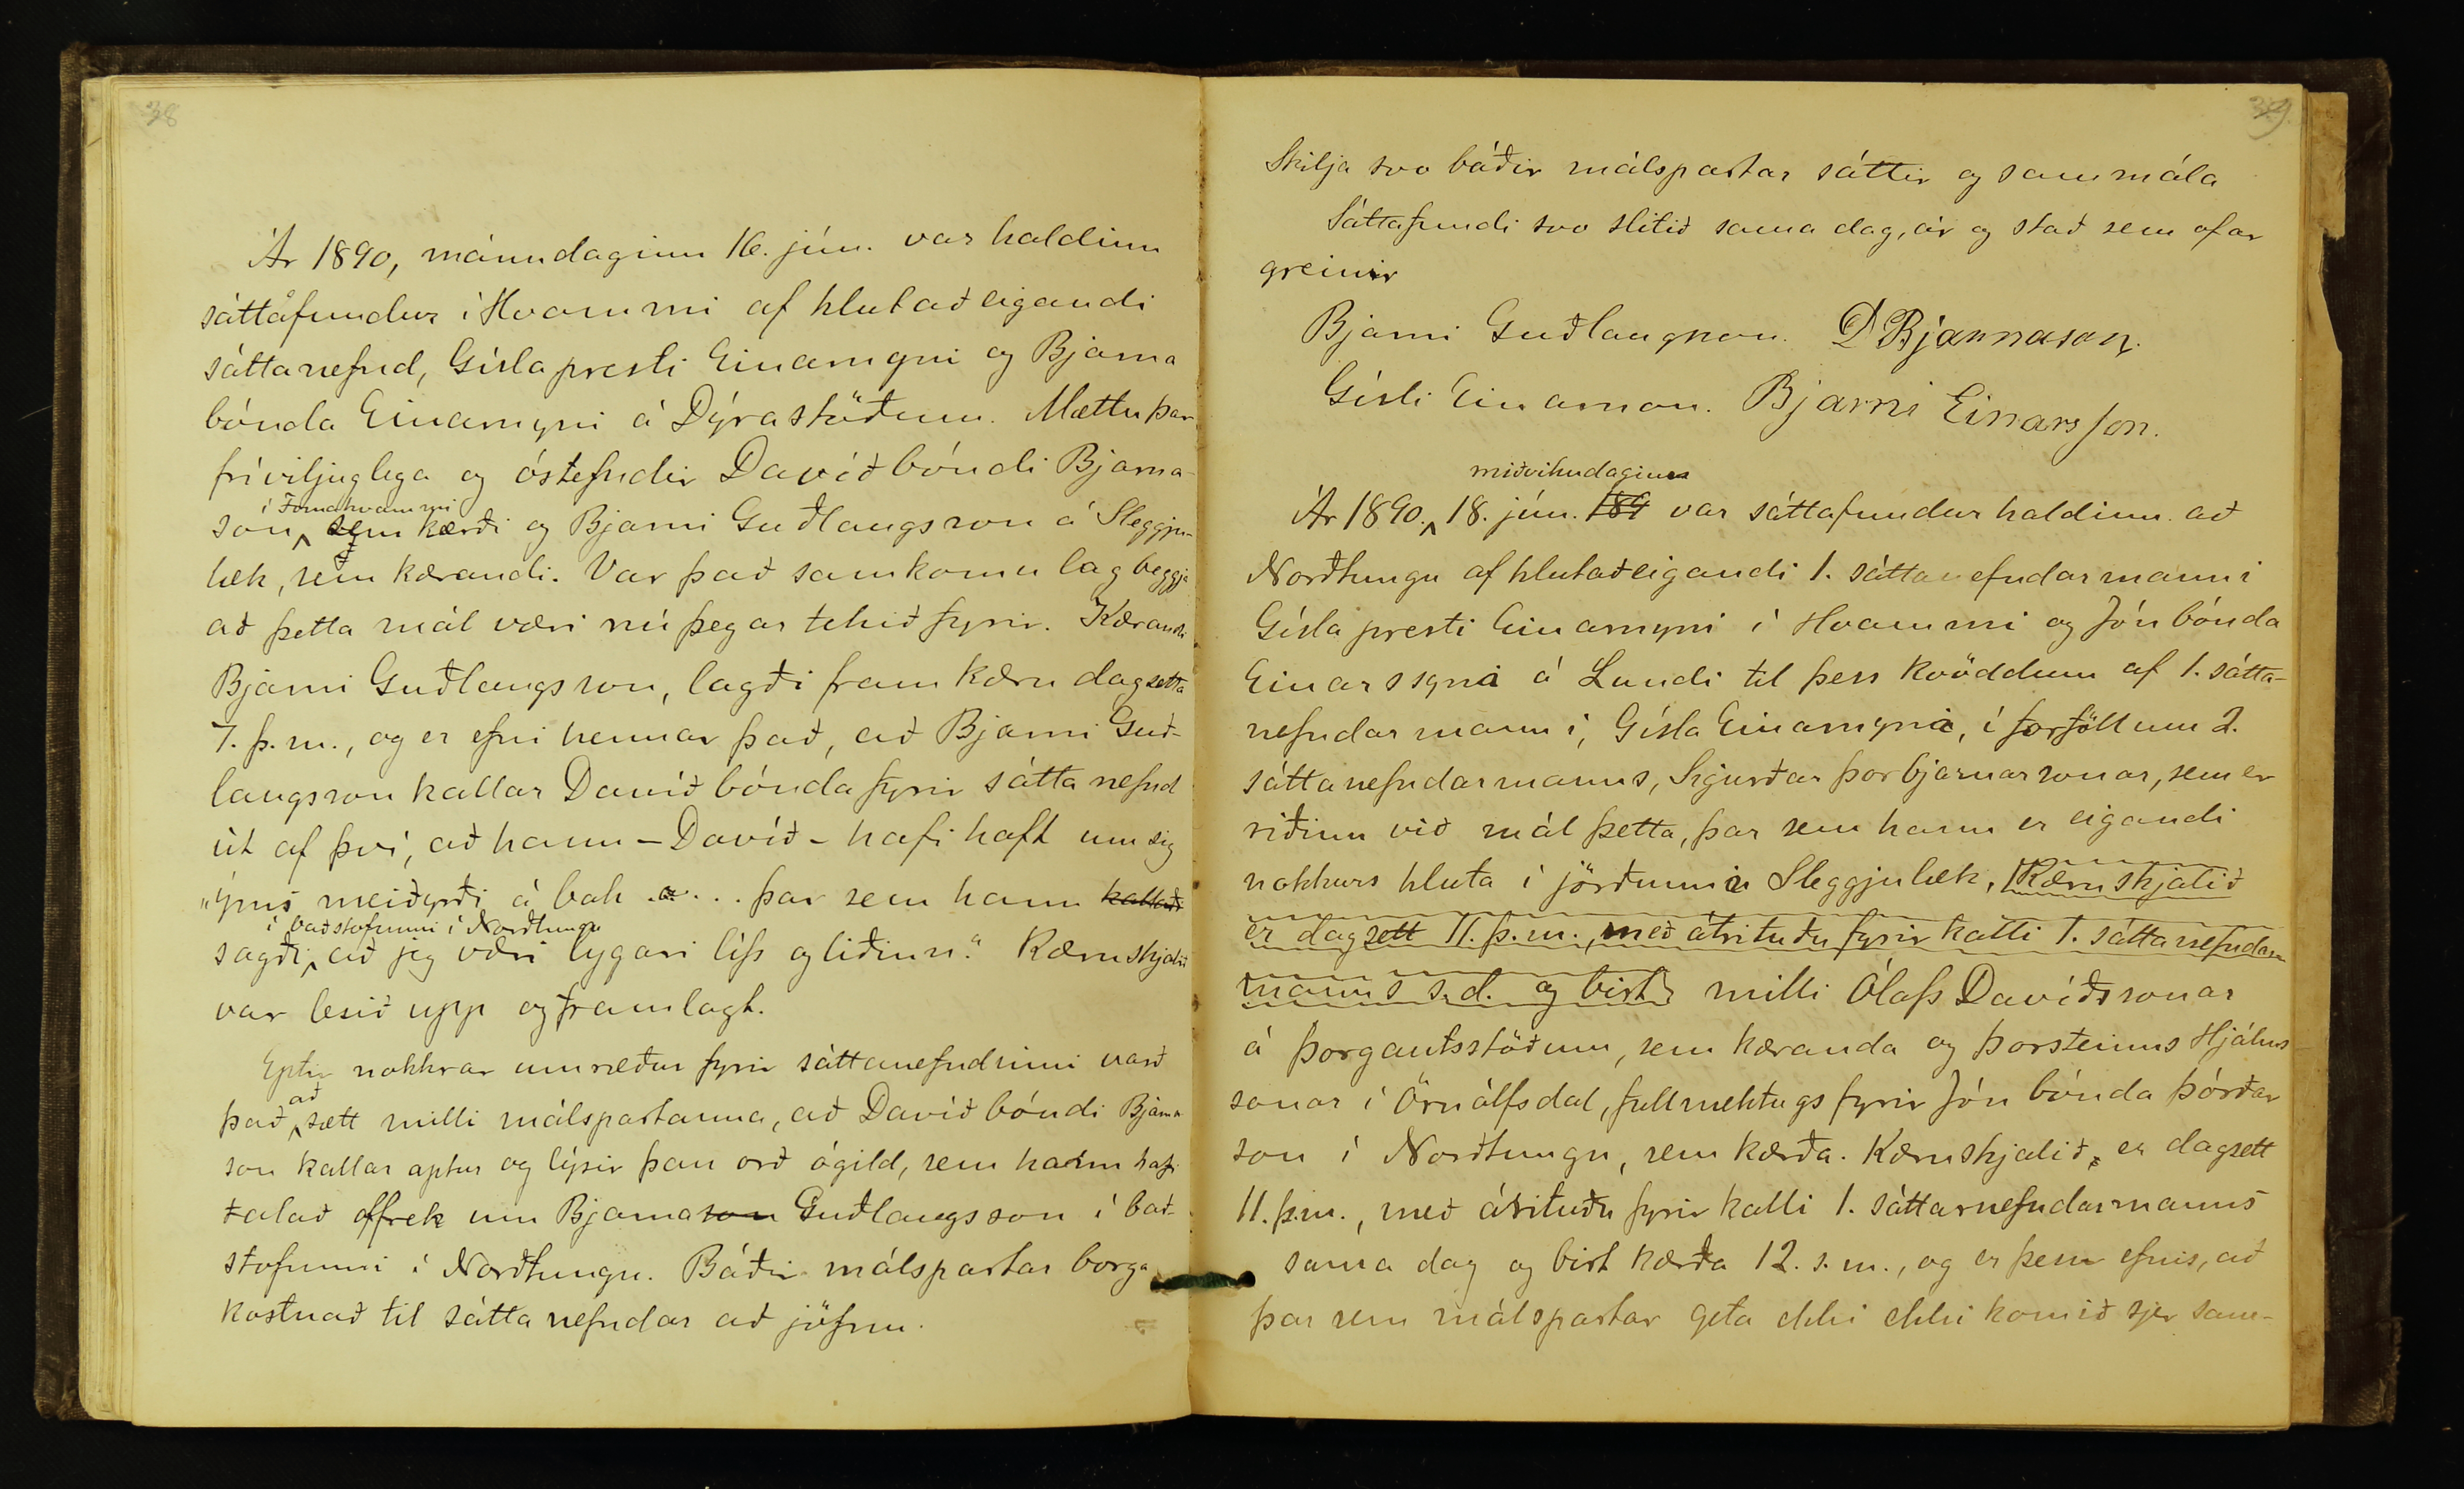 38
Ár 1890, mánudaginn 16. jún. var haldinn
sáttafundur í Hvammi af hlutaðeigandi
sáttanefnd, Gísla presti Einarssyni og Bjarna
bónda Einarssyni á Dýrastöðum. Mættu þar
fríviljuglega og óstefndir Davíð bóndi Bjarna-
í Fornahvammi
son, sem kærði og Bjarni Guðlaugsson á Sleggju-
læk, sem kærandi. Var það samkomulag beggja
að þetta mál væri nú þegar tekið fyrir. Kærandi
Bjarni Guðlaugsson, lagði fram kæru dagsetta
7. þ. m., og er efni hennar það, að Bjarni Guð-
laugsson kallar Davíð bónda fyrir sáttanefnd
út af því, að hann – Davíð – hafi haft um sig
„ýmis meiðyrði á bak ... þar sem hann kallaði
í baðstofunni í Norðtungu
sagði, að jeg væri lygari lífs og liðinn.“ Kæruskjalið
var lesið upp og framlagt.
Eptir nokkrar umræður fyrir sáttanefndinni varð
að
það sætt milli málspartanna, að Davíð bóndi Bjarna
son kallar aptur og lýsir þau orð ógild, sem hann hafi
talað offrek um Bjarnason Guðlaugsson í bað-
stofunni í Norðtungu. Báðir málspartar borga
kostnað til sáttanefndar að jöfnu.
39.
Skilja svo báðir málspartar sáttir og sammála
Sáttafundi svo slitið sama dag, ár og stað sem ofar
greinir
Bjarni Guðlaugsson. D Bjarnason.
Gísli Einarsson. Bjarni Einarsson.
miðvikudaginn
Ár 1890, 18. jún. 189 var sáttafundur haldinn að
Norðtungu af hlutaðeigandi 1. sáttanefndarmanni
Gísla presti Einarssyni í Hvammi og Jón bónda
Einarssyni á Lundi til þess kvöddum af 1. sátta-
nefndarmanni, Gísla Einarssyni, í forföllum 2.
sáttanefndarmanns, Sigurðar Þorbjarnarsonar, sem er
riðinn við mál þetta, þar sem hann er eigandi
nokkurs hluta í jörðunni Sleggjulæk, Kæruskjalið
er dagsett 11. þ. m., með árituðu fyrirkalli 1. sáttanefndar-
manns s. d. og birt milli Ólafs Davíðssonar
á Þorgautsstöðum, sem kæranda og Þorsteinns Hjálms-
sonar í Örnólfsdal, fullmektugs fyrir Jón bónda Þórðar
son í Norðtungu, sem kærða. Kæruskjalið, er dagsett
11. þ.m., með árituðu fyrirkalli 1. sáttarnefndarmanns
sama dag og birt kærða 12. s. m., og er þess efnis, að
þar sem málspartar geta ekki ekki komið sjer sam-